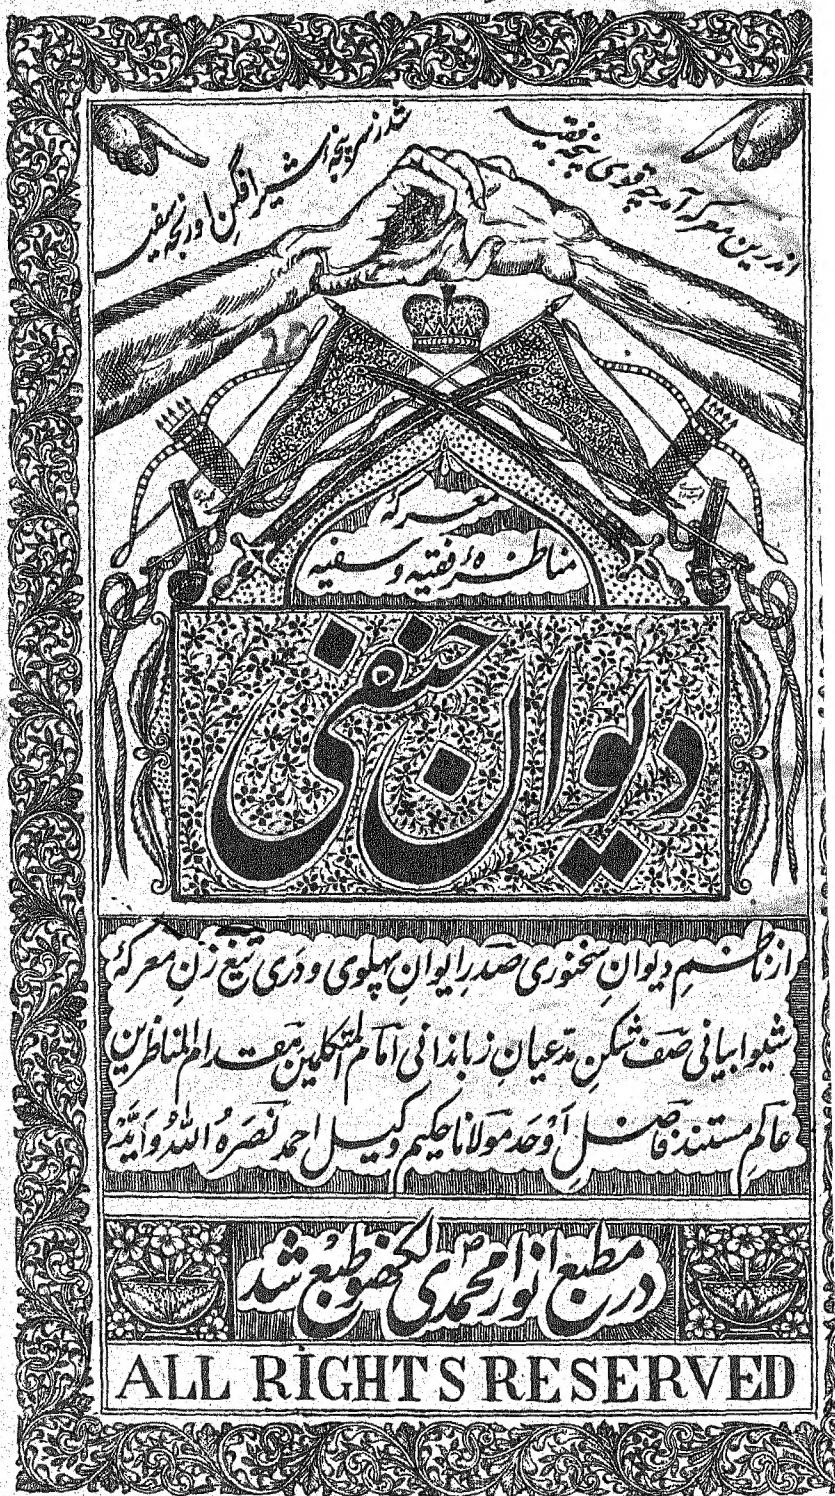 اندرین معرکه آمد چه قوی پنجه فقیه
شد ز سرپنجهٔ شیر افگن او رنجه سفیه
معرکهٔ
مناظرهٔ فقیه و سفیه
دیوان حنفی
از ناظمِ دیوانِ سخنوری صدرِ ایوانِ پهلوی و دری تیغ زنِ معرکهٔ
شیوا بیانی صف شکنِ مدّعیانِ زباندانی امام المتکلمین مقدام المناظرین
عالمِ مستند فاضلِ اَوْحَد مولانا حکیم وکیل احمد نَصَرَهُ اللهُ وَاَیَّدَهُ
در مطبع انوار محمدی لکھنؤ طبع شد
ALL RIGHTS RESERVED